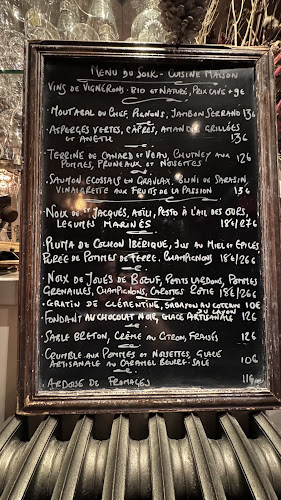 MENU DU SOIR - CUISINE MAISON
VINS DE VIGNERONS · BIO ET NATURE, PRIX CAVE +9€
· MOUTABAL DU CHEF, PIGNONS, JAMBON SERRANO 13€
· ASPERGES VERTES, CÂPRES, AMANDES GRILLÉES
ET ANETH 13€
· TERRINE DE CANARD ET VEAU, CHUTNEY AUX
POMMES, PRUNEAUX ET NOISETTES 12€
· SAUMON ECOSSAIS EN GRAVLAX, BLINI DE SARASIN,
VINAIGRETTE AUX FRUITS DE LA PASSION 15€
· NOIX DE ST JACQUES, AÏOLI, PESTO À L'AIL DES OURS,
LEGUMES MARINÉS 18€/27€
· PLUMA DE COCHON IBÉRIQUE, JUS AU MIEL ET ÉPICES
PURÉE DE POMMES DE TERRE, CHAMPIGNONS 18€/26€
· NOIX DE JOUES DE BŒUF, PETITS LARDONS, POMMES
GRENAILLES, CHAMPIGNONS, CAROTTES RÔTIE 18€/26€
· GRATIN DE CLÉMENTINE, SABAYON AU COTEAUX 10€
DU LAYON
· FONDANT AU CHOCOLAT NOIR, GLACE ARTISANALE 12€
· SABLÉ BRETON, CRÈME AU CITRON, FRAISES 12€
· CRUMBLE AUX POMMES ET NOISETTES, GLACE
ARTISANALE AU CARAMEL BEURRE-SALÉ 10€
· ARDOISE DE FROMAGES 11€